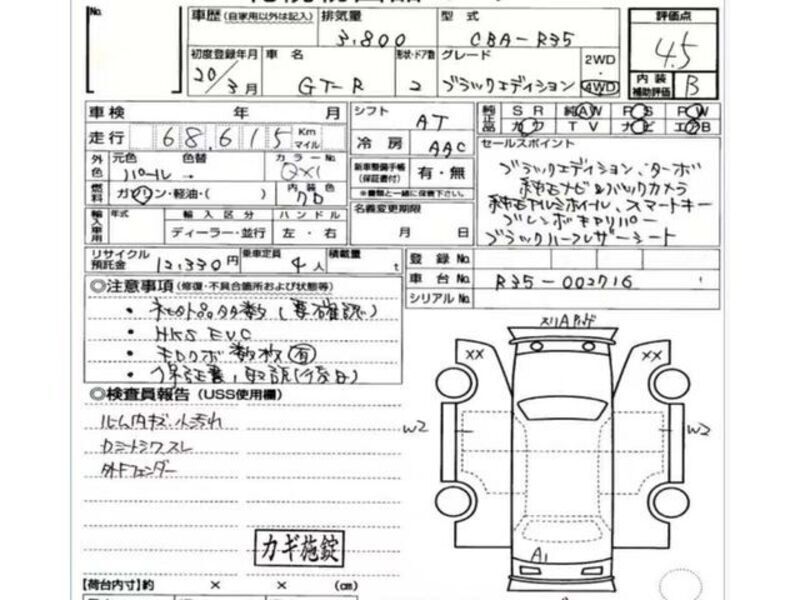 No.
車歴 (自家用以外は記入) 排気量 型式 評価点
3,800 CBA-R35 4.5
初度登録年月 車名 形状・ドア数 グレード 2WD
20/3月 GT-R 2 ブラックエディション 4WD
内装補助評価 B
車検 年 月 シフト AT 純正品 SR 純AW PS PW
カワ TV ナビ エアB
走行 68,615 Km マイル 冷房 AAC セールスポイント
外色 元色 色替 カラーNo. 新車整備手帳(保証書付) 有・無
パール → QX1 ※書類と一緒に保管下さい。
燃料 ガソリン・軽油・( ) 内装色 クロ
ブラックエディション、ターボ
純正ナビ&バックカメラ
純正アルミホイール、スマートキー
ブレンボキャリパー
ブラックハーフレザーシート
輸入車用 年式 輸入区分 ハンドル 名義変更期限
ディーラー・並行 左・右 月 日
リサイクル預託金 12,330円 乗車定員 4人 積載量 t 登録No.
車台No. R35-002716
シリアルNo.
◎注意事項 (修復・不具合箇所および状態等)
・社外品多数(要確認)
・HKS EVC
・モロクボ数枚 有
・保証書、取説(後日)
◎検査員報告 (USS使用欄)
ルーム内キズ、小汚れ
カミートシワスレ
外Fフェンダー
カギ施錠
スリA アンダ
XX XX
W2 W2
A1
【荷台内寸】約 × × (cm)